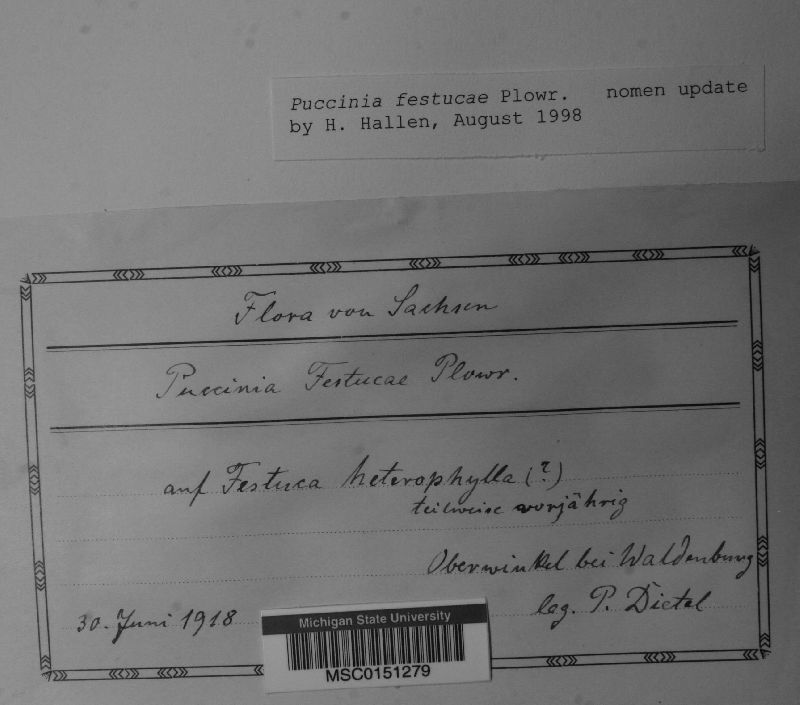 Puccinia festucae Plowr. nomen update
by H. Hallen, August 1998
Flora von Sachsen
Puccinia Festucae Plowr.
auf Festuca heterophylla (?)
teilweise vorjährig
Oberwinkel bei Waldenburg
30. Juni 1918
leg. P. Dietel
Michigan State University
MSC0151279